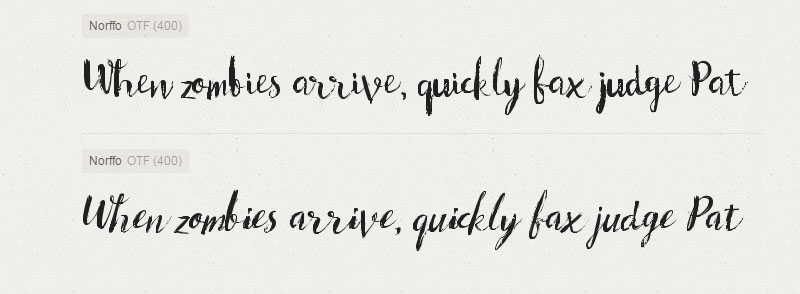 Norffo OTF (400)
When zombies arrive, quickly fax judge Pat
Norffo OTF (400)
When zombies arrive, quickly fax judge Pat